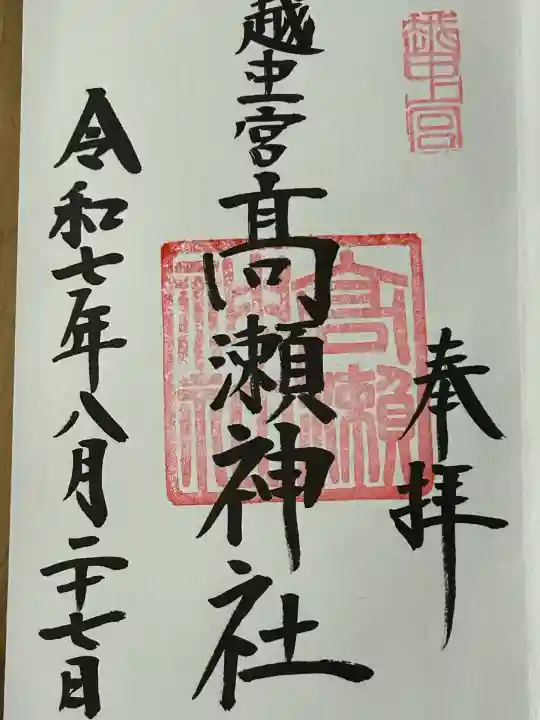 越中宮
奉拝
越中宮髙瀬神社
髙瀬神社
令和七年八月二十七日